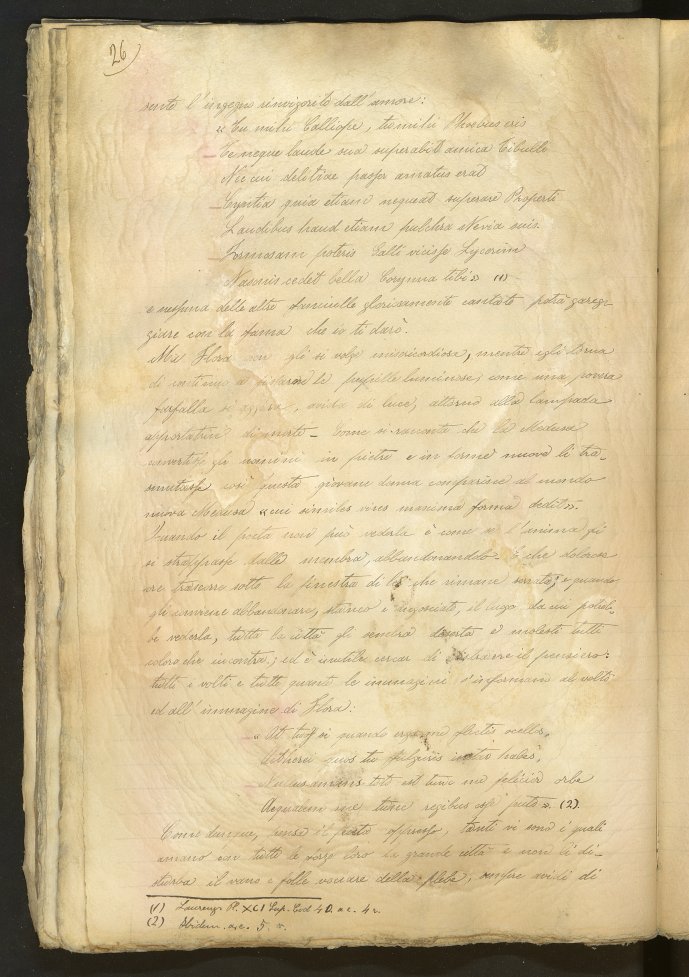 26
sente l'ingegno rinvigorito dall'amore:
"Tu mihi Calliope, tu mihi Phoebus eris
Te neque laude sua superabit amica Tibulli
Nec cui delitiae passer amatus erat
Cyntia quin etiam nequeat superare Properti
Laudibus haud etiam pulchra Nevia suis.
Formosam poteris Galli vicisse Lycorim
Nasonis cedet bella Corynna tibi" (1)
e nessuna delle altre fanciulle gloriosamente cantate potrà gareg-
giare con la fama che io ti darò.
Ma Flora non gli si volge misericordiosa, mentre egli
di continuo a le pupille luminose come una povera
farfalla si aggira, avida di luce, attorno alla lampada
apportatrice di morte. Come si racconta che la Medusa
convertisse gli uomini in pietre e in forme nuove li tra-
smutasse così questa giovane donna comparisce al mondo
nuova Medusa "cui similes vires maxima forma dedit".
Quando il poeta non può vederla è come se l'anima gli
si strappasse dalle membra, abbandonandolo. E che dolorose
ore trascorre sotto la finestra di lei che rimane serrata; e quando
gli conviene abbandonare, stanco e angosciato, il luogo da cui potreb-
be vederla, tutta la città gli sembra deserta e molesti tutti
coloro che incontra; ed è inutile cercar di distrarre il pensiero:
tutti i volti e tutte quante le immagini s'informano al volto
ed all'immagine di Flora:
"At si quando erga me flectis ocellos,
Aethereis quos tu fulgidis instar habes,
Nullus amans toto est tunc me felicior orbe
Aequacem me tunc regibus esse puto". (2)
Come dunque, pensa il poeta oppresso, tanti vi sono i quali
amano con tutte le forze loro la grande città e non li di-
sturba il vano e folle vociare della plebe, sempre avidi di
(1) Laurenz. Pl. XCI Sup. Cod. 40. a c. 4 v.
(2) Ibidem. a c. 5. v.